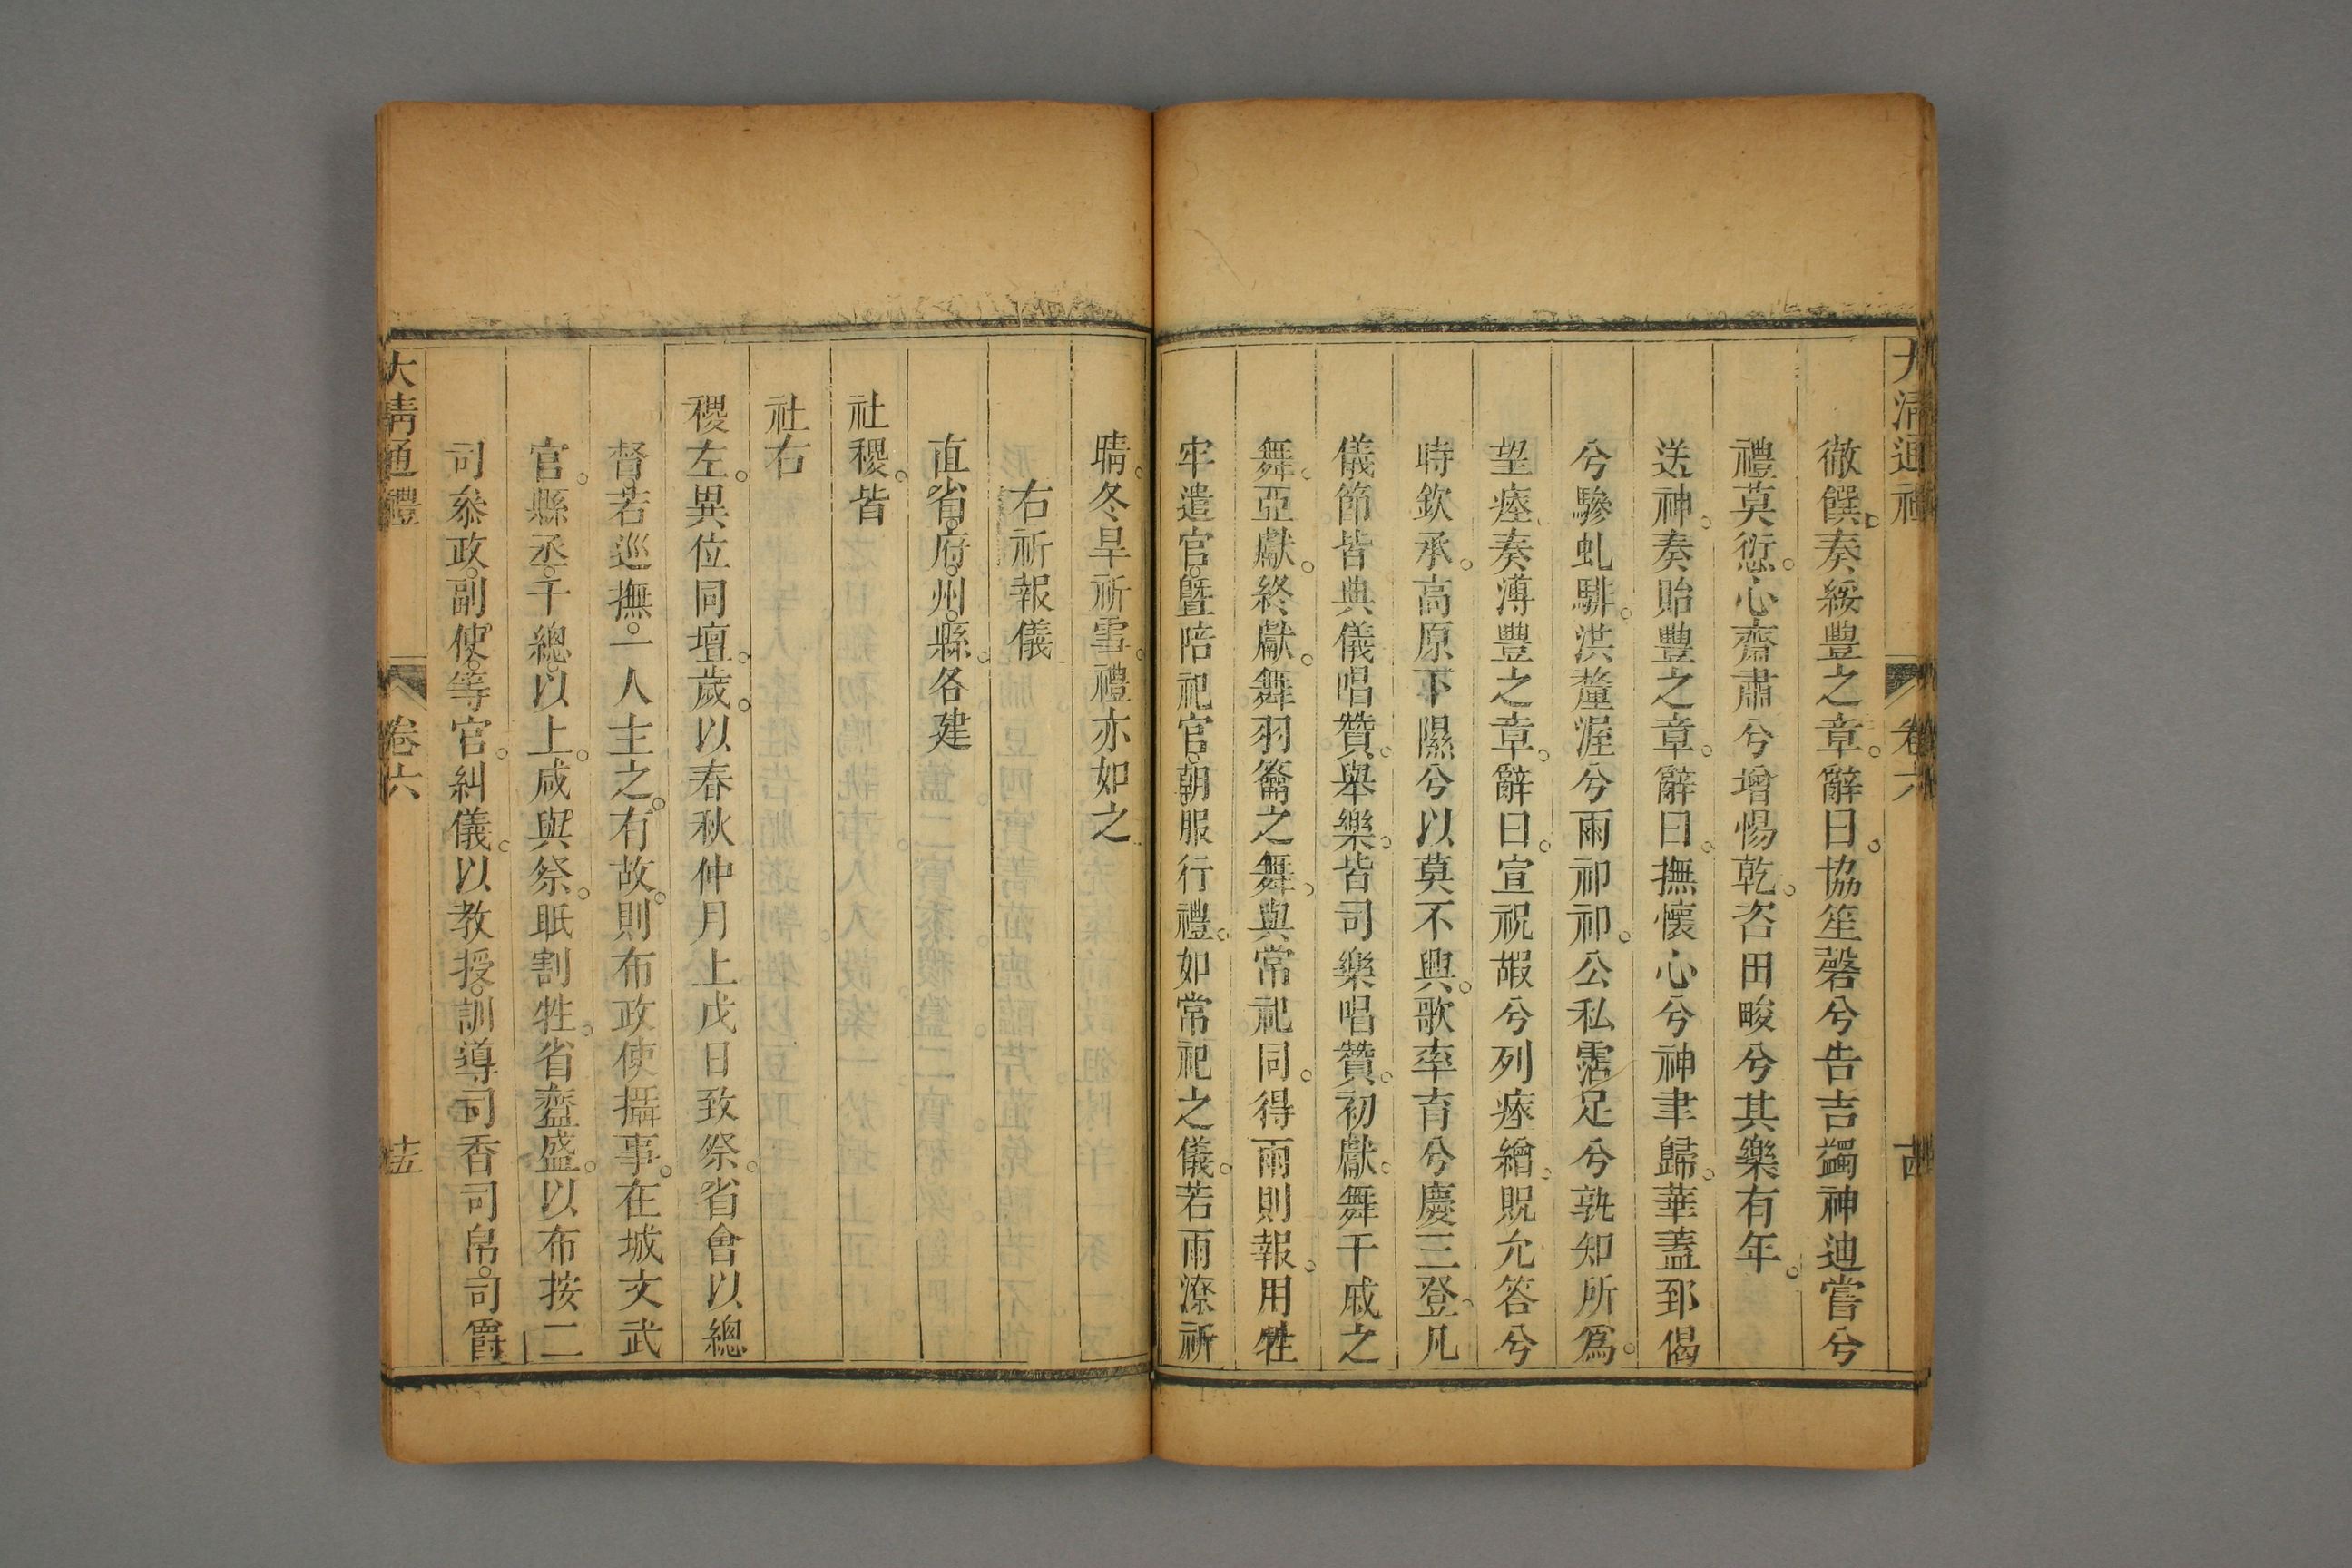 大清通禮 卷六 古
徹饌奏綏豐之章。辭曰。協笙磬兮告吉蠲神迪嘗兮
禮莫愆。心齋肅兮增惕乾。咨田畯兮其樂有年。
送神。奏貽豐之章。辭曰。撫懷心兮神聿歸。華蓋郅偈
兮驂虬騑。洪釐渥兮雨祁祁。公私霑足兮孰知所爲。
望瘞。奏溥豐之章。辭曰。宣祝嘏兮列瘗繒。貺允答兮
時欽承。高原下隰兮以莫不興。歌率育兮慶三登。凡
儀節皆典儀唱贊。舉樂。皆司樂唱贊。初獻。舞干戚之
舞。亞獻。終獻。舞羽籥之舞。與常祀同。得雨則報。用牲
牢遣官。暨陪祀官。朝服行禮。如常祀之儀。若雨潦祈
晴。冬旱祈雪。禮亦如之
右祈報儀
直省。府。州。縣。各建
社稷。皆
社右
稷左。異位同壇。歲。以春秋仲月上戊日致祭。省會以總
督。若巡撫。一人主之。有故。則布政使攝事。在城文武
官。縣丞。千總。以上。咸與祭。眂割牲。省齍盛。以布按二
司叅政。副使。等官。糾儀。以教授。訓導。司香司帛。司爵
大清通禮 卷六 十五